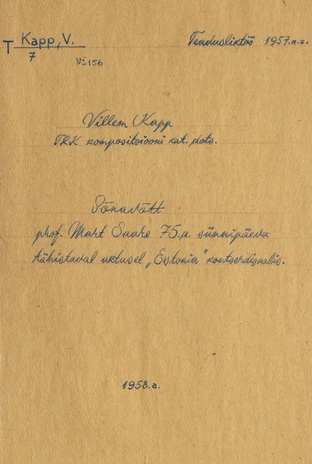 T Kapp, V. Teaduslik töö 1957.a.
7 V-156
Villem Kapp
TRK kompositsiooni kat. dots.
Sõnavõtt
prof. Mart Saare 75.a. sünnipäeva
tähistaval aktusel „Estonia" kontserdisaalis.
1958.a.